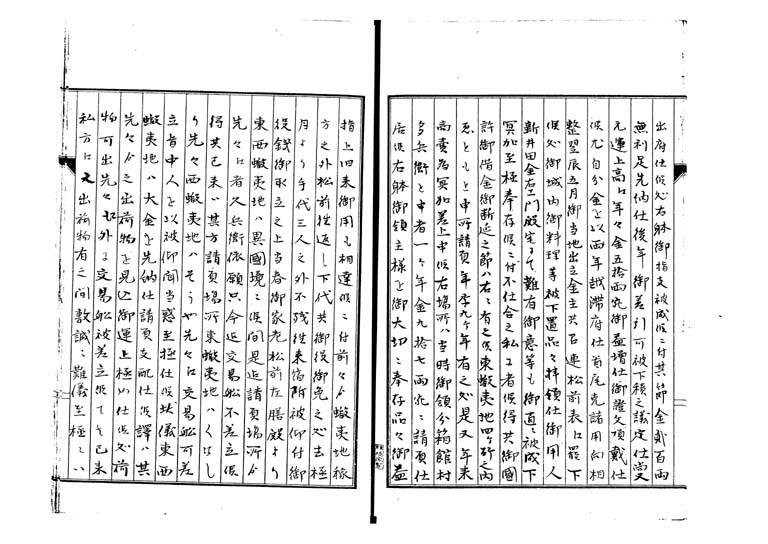 出府仕候処右躰御指支被成候ニ付其節金弐百両
無利足先納仕後年御差引可被下積之議定仕尚又
元運上高江年々金五拾両宛御益増仕御證文頂戴仕
候尤自分金を以両年越滞府仕首尾克諸用向相
整翌辰五月御当地出立金主共召連松前表江罷下
候処御城内御料理等被下置品々拝領仕御用人
新井田金右エ門殿宅ニ而難有御意等も御直ニ被成下
冥加至極奉存候ニ付不仕合之私ニ者候得共御国
許御借金御断延之節ハ右ニ有之候東蝦夷地四ヶ所之内
ゑともと申所請負年季九ヶ年有之処是又年来
高売為冥加差上申候右場所ハ当時御領分箱館村
多兵衛と申者一ヶ年金九拾七両宛ニ請負仕
居候右躰御領主様を御大切ニ奉存品々御益
指上旧来御用も相達候ニ付前々より蝦夷地旅
方之外松前往返し下代共御役御免之処去極
月より手代三人之外不残往来宿所被仰付御
役銭御取立之上当春御家老松前左膳殿より
東西蝦夷地ハ異国境ニ候間是迄請負場所より
先々江者久兵衛依願只今迄交易船不差立候
得共已来ハ其方請負場所東蝦夷地ハくなし
り先々西蝦夷地ハそうや先々江交易船可差
立旨中人を以被仰聞当惑至極仕候此儀東西
蝦夷地ハ大金を先納仕請負支配仕候訳ハ其
先々より之出荷物を見込御運上極め仕候処荷
物可出先々江外より交易船被差立候而ハ已来
私方江ハ出荷物有之間敷誠ニ難儀至極ニハ